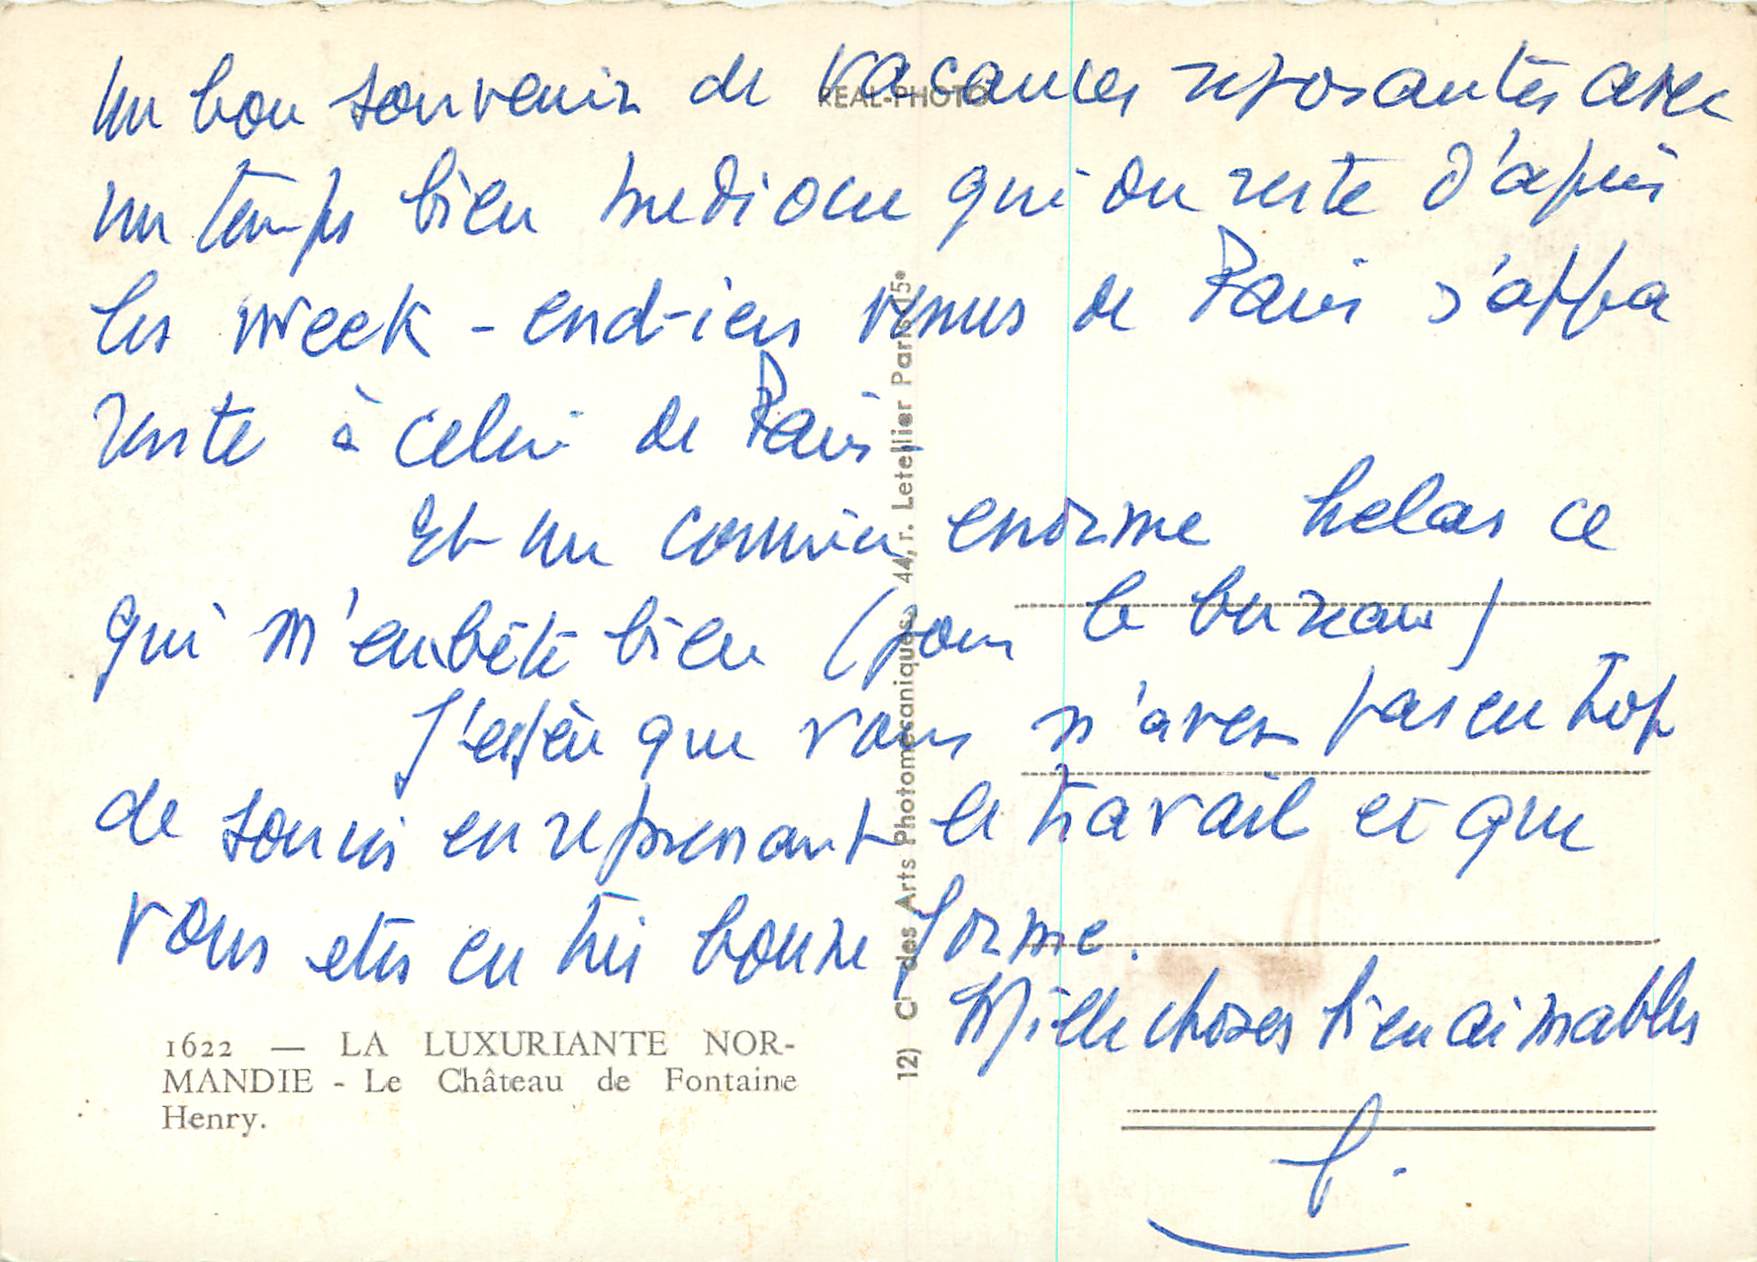 Un bon souvenir de vacances reposantes avec
un temps bien mediocre qui du reste d'après
les week-end-iers venus de Paris s'appa
rente à celui de Paris.
Et un courrier enorme helas ce
qui m'embête bien (pour le bureau)
J'espère que vous n'avez pas eu trop
de soucis en reprenant le travail et que
vous etes en très bonne forme.
Mille choses bien aimables
f.
REAL-PHOTO
12) Cie des Arts Photomécaniques, 44, r. Letellier Paris-15e
1622 — LA LUXURIANTE NOR-
MANDIE - Le Château de Fontaine
Henry.